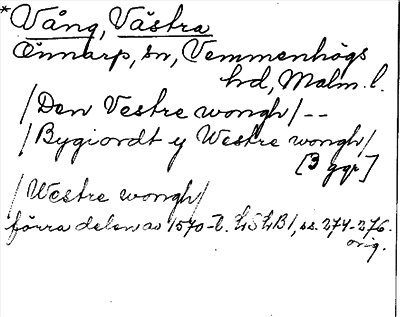 *Vång, Västra
Önnarp, sn, Vemmenhögs
hd, Malm. l.
/Den Vestre wongh/--
/Bygiordt y Westre wongh/
[3 ggr]
/Westre wongh/
förra delen av 1570-t. LSLB1, ss. 274-276.
orig.